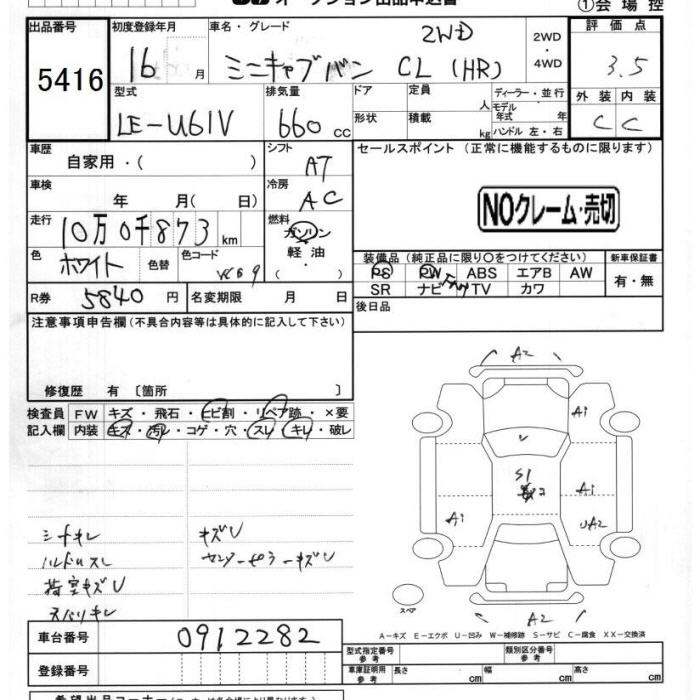 オークション出品申込書
①会場控
出品番号
5416
初度登録年月
16 月
車名・グレード
2WD
ミニキャブバン CL (HR)
2WD
・
4WD
評価点
3.5
型式
LE-U61V
排気量
660 cc
ドア
形状
定員 人
積載 kg
ディーラー・並行
モデル年式 年
ハンドル 左・右
外装 内装
C C
車歴
自家用・( )
シフト
AT
セールスポイント(正常に機能するものに限ります)
車検
年 月( 日)
冷房
AC
NOクレーム・売切
走行
10万0千873 km
燃料
ガソリン
軽油
( )
色
ホワイト
色替
色コード
装備品(純正品に限り○をつけてください)
新車保証書
PS PW ABS エアB AW
SR ナビ TV カワ
有・無
R券
5840 円
名変期限 月 日
後日品
注意事項申告欄(不具合内容等は具体的に記入して下さい)
修復歴 有 〔箇所 〕
検査員 FW キズ・飛石・ヒビ割・リペア跡・×要
記入欄 内装 キズ・汚レ・コゲ・穴・スレ・キレ・破レ
A2
A1
U
S1
A1
A1
UA2
シートキレ
キズU
ハンドルスレ
荷室キズU
スペア
A2
A-キズ E-エクボ U-凹み W-補修跡 S-サビ C-腐食 XX-交換済
車台番号
0912282
登録番号
型式指定番号 参考
類別区分番号 参考
車庫証明用 参考
長さ cm
幅 cm
高さ cm